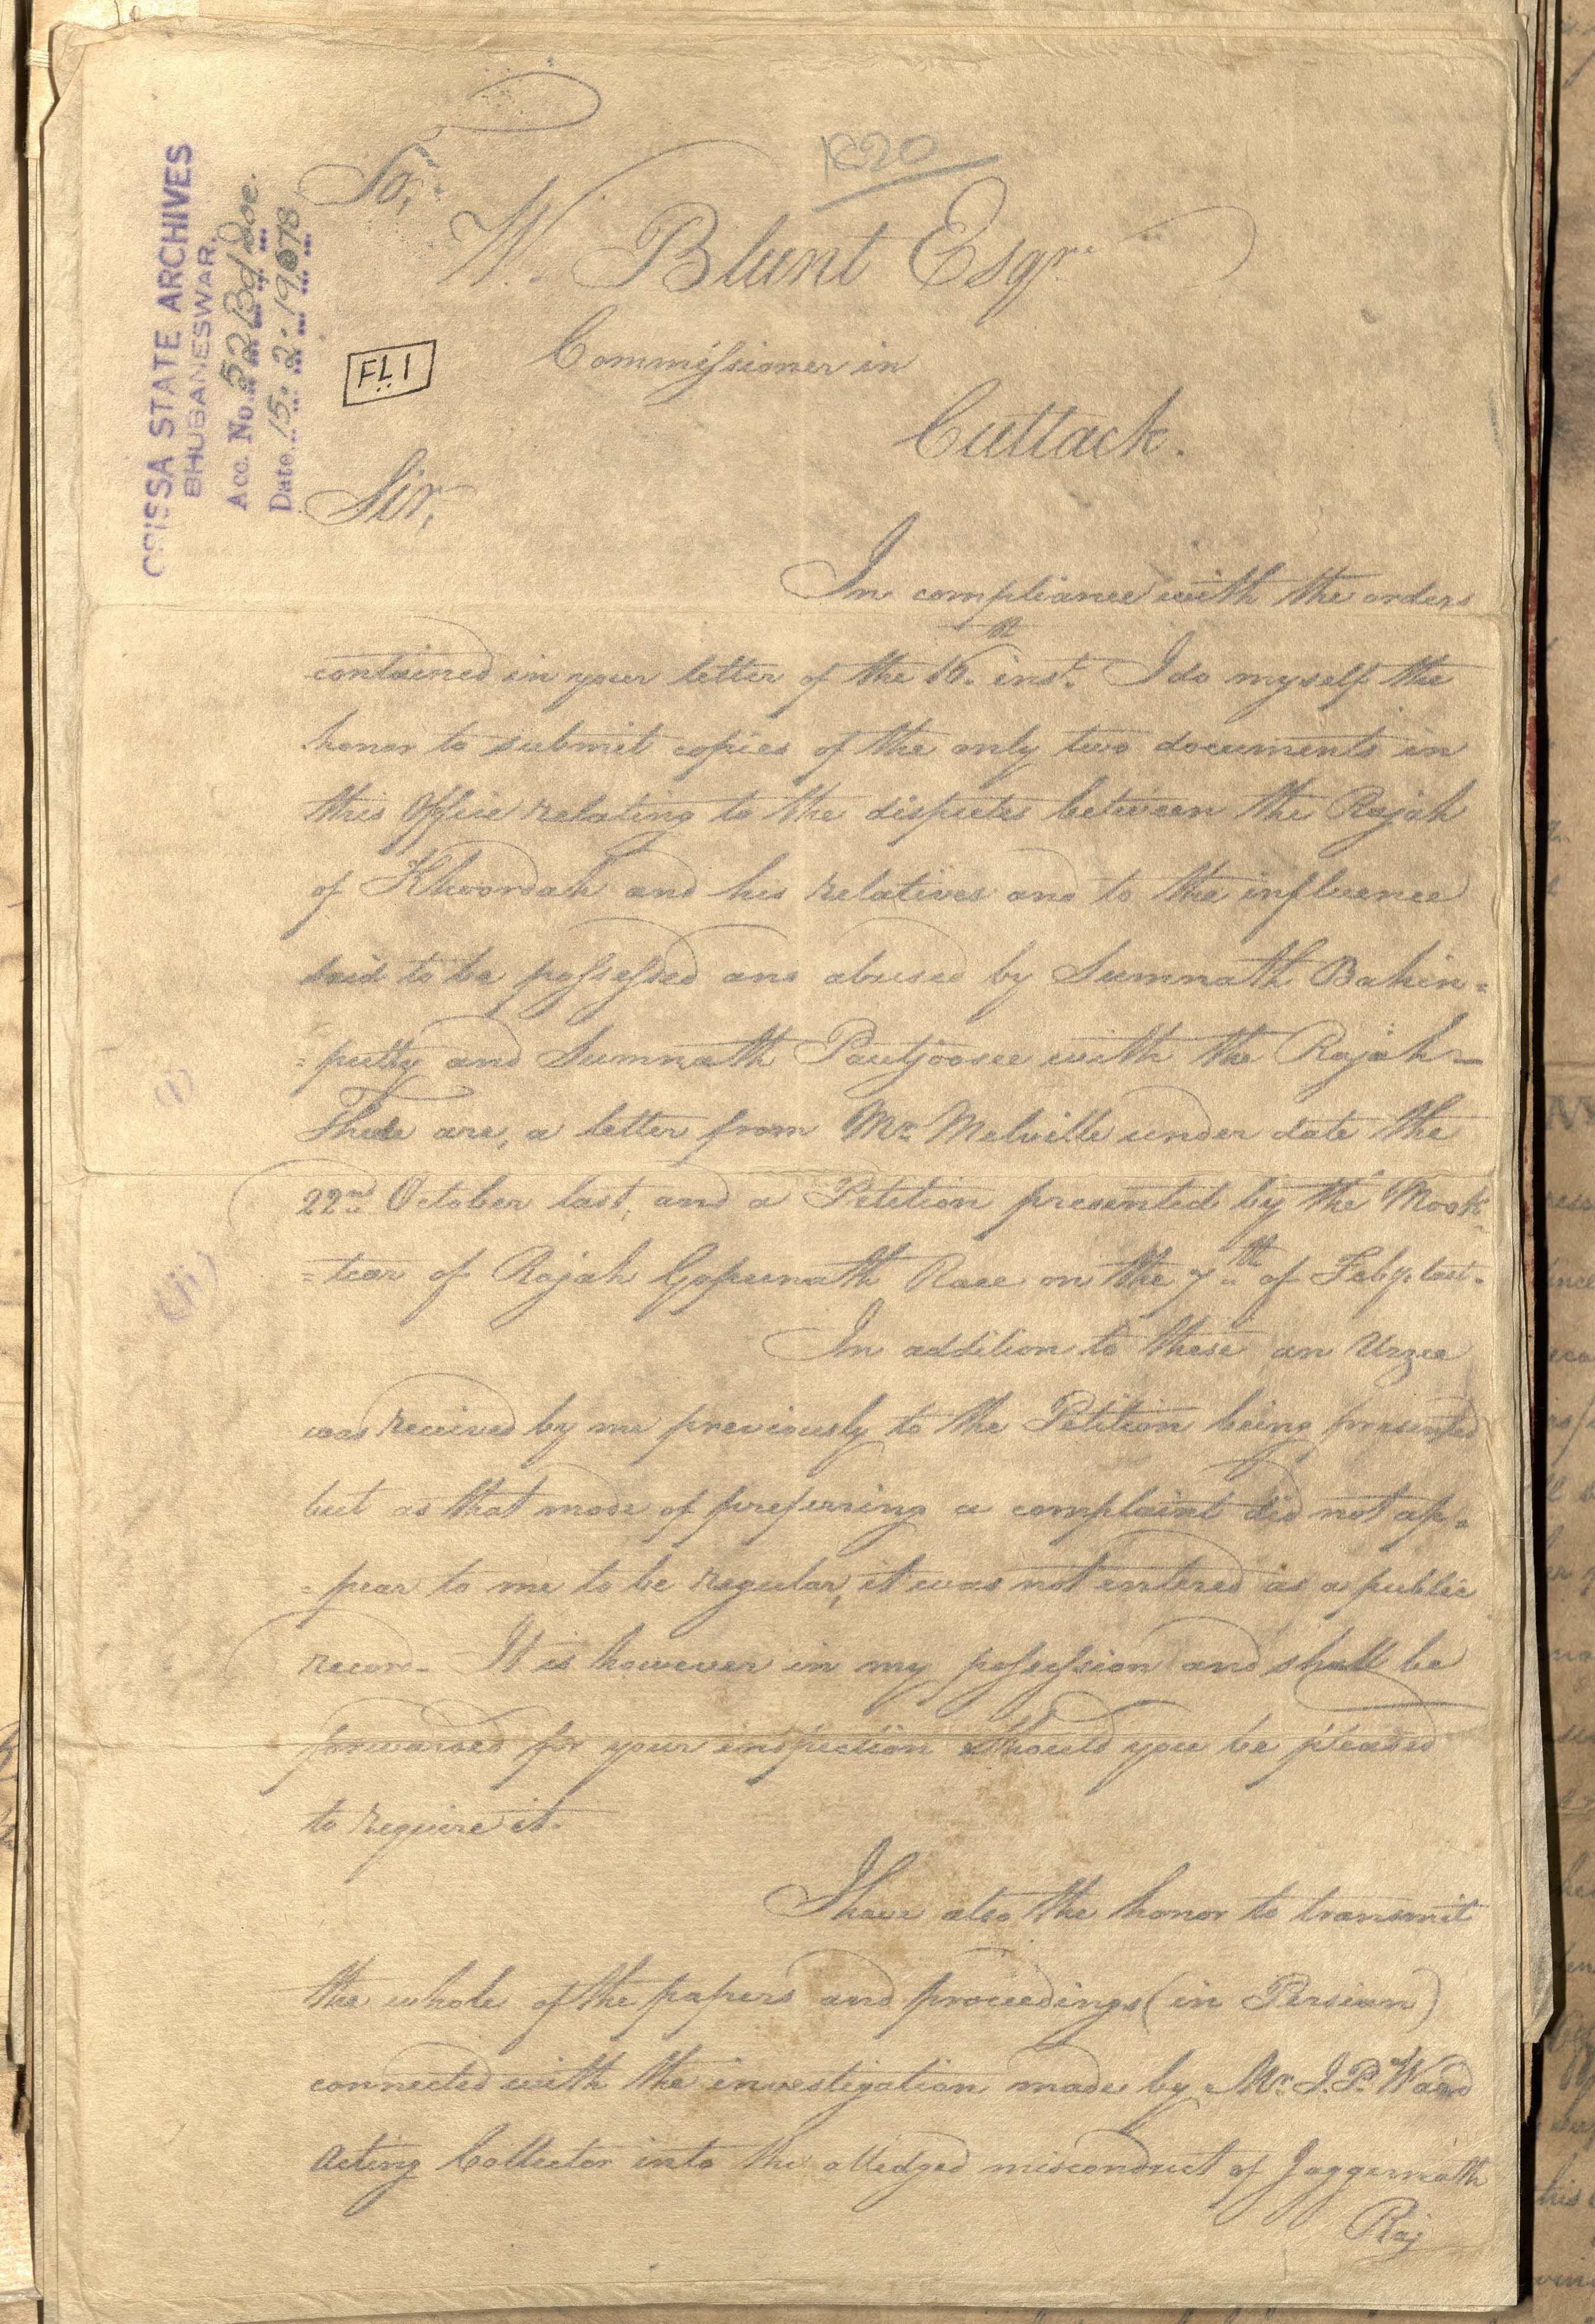 1820
To,
W. Blunt Esqr.
Commissioner in
Cuttack.
ORISSA STATE ARCHIVES
BHUBANESWAR.
Acc. No. 52 Bd Doc.
Date 15.2.1978
FL 1
Sir,
In compliance with the orders
contained in your letter of the 16th inst. I do myself the
honor to submit copies of the only two documents in
this Office relating to the disputes between the Rajah
of Khoordah and his relatives and to the influence
said to be possessed and abused by Sumnath Bahin=
=putty and Sumnath Pautjoosee with the Rajah—
These are, a letter from Mr. Melville under date the
22nd October last, and a Petition presented by the Mook=
=tear of Rajah Gopeenath Raee on the 7th of Feby last.
In addition to these an Urzee
was received by me previously to the Petition being presented
but as that mode of preferring a complaint did not ap=
=pear to me to be regular, it was not entered as a public
record. It is however in my possession and shall be
forwarded for your inspection should you be pleased
to require it.
I have also the honor to transmit
the whole of the papers and proceedings (in Persian)
connected with the investigation made by Mr. J. P. Ward
Acting Collector into the alledged misconduct of Jaggernath
Raj
(i)
(ii)